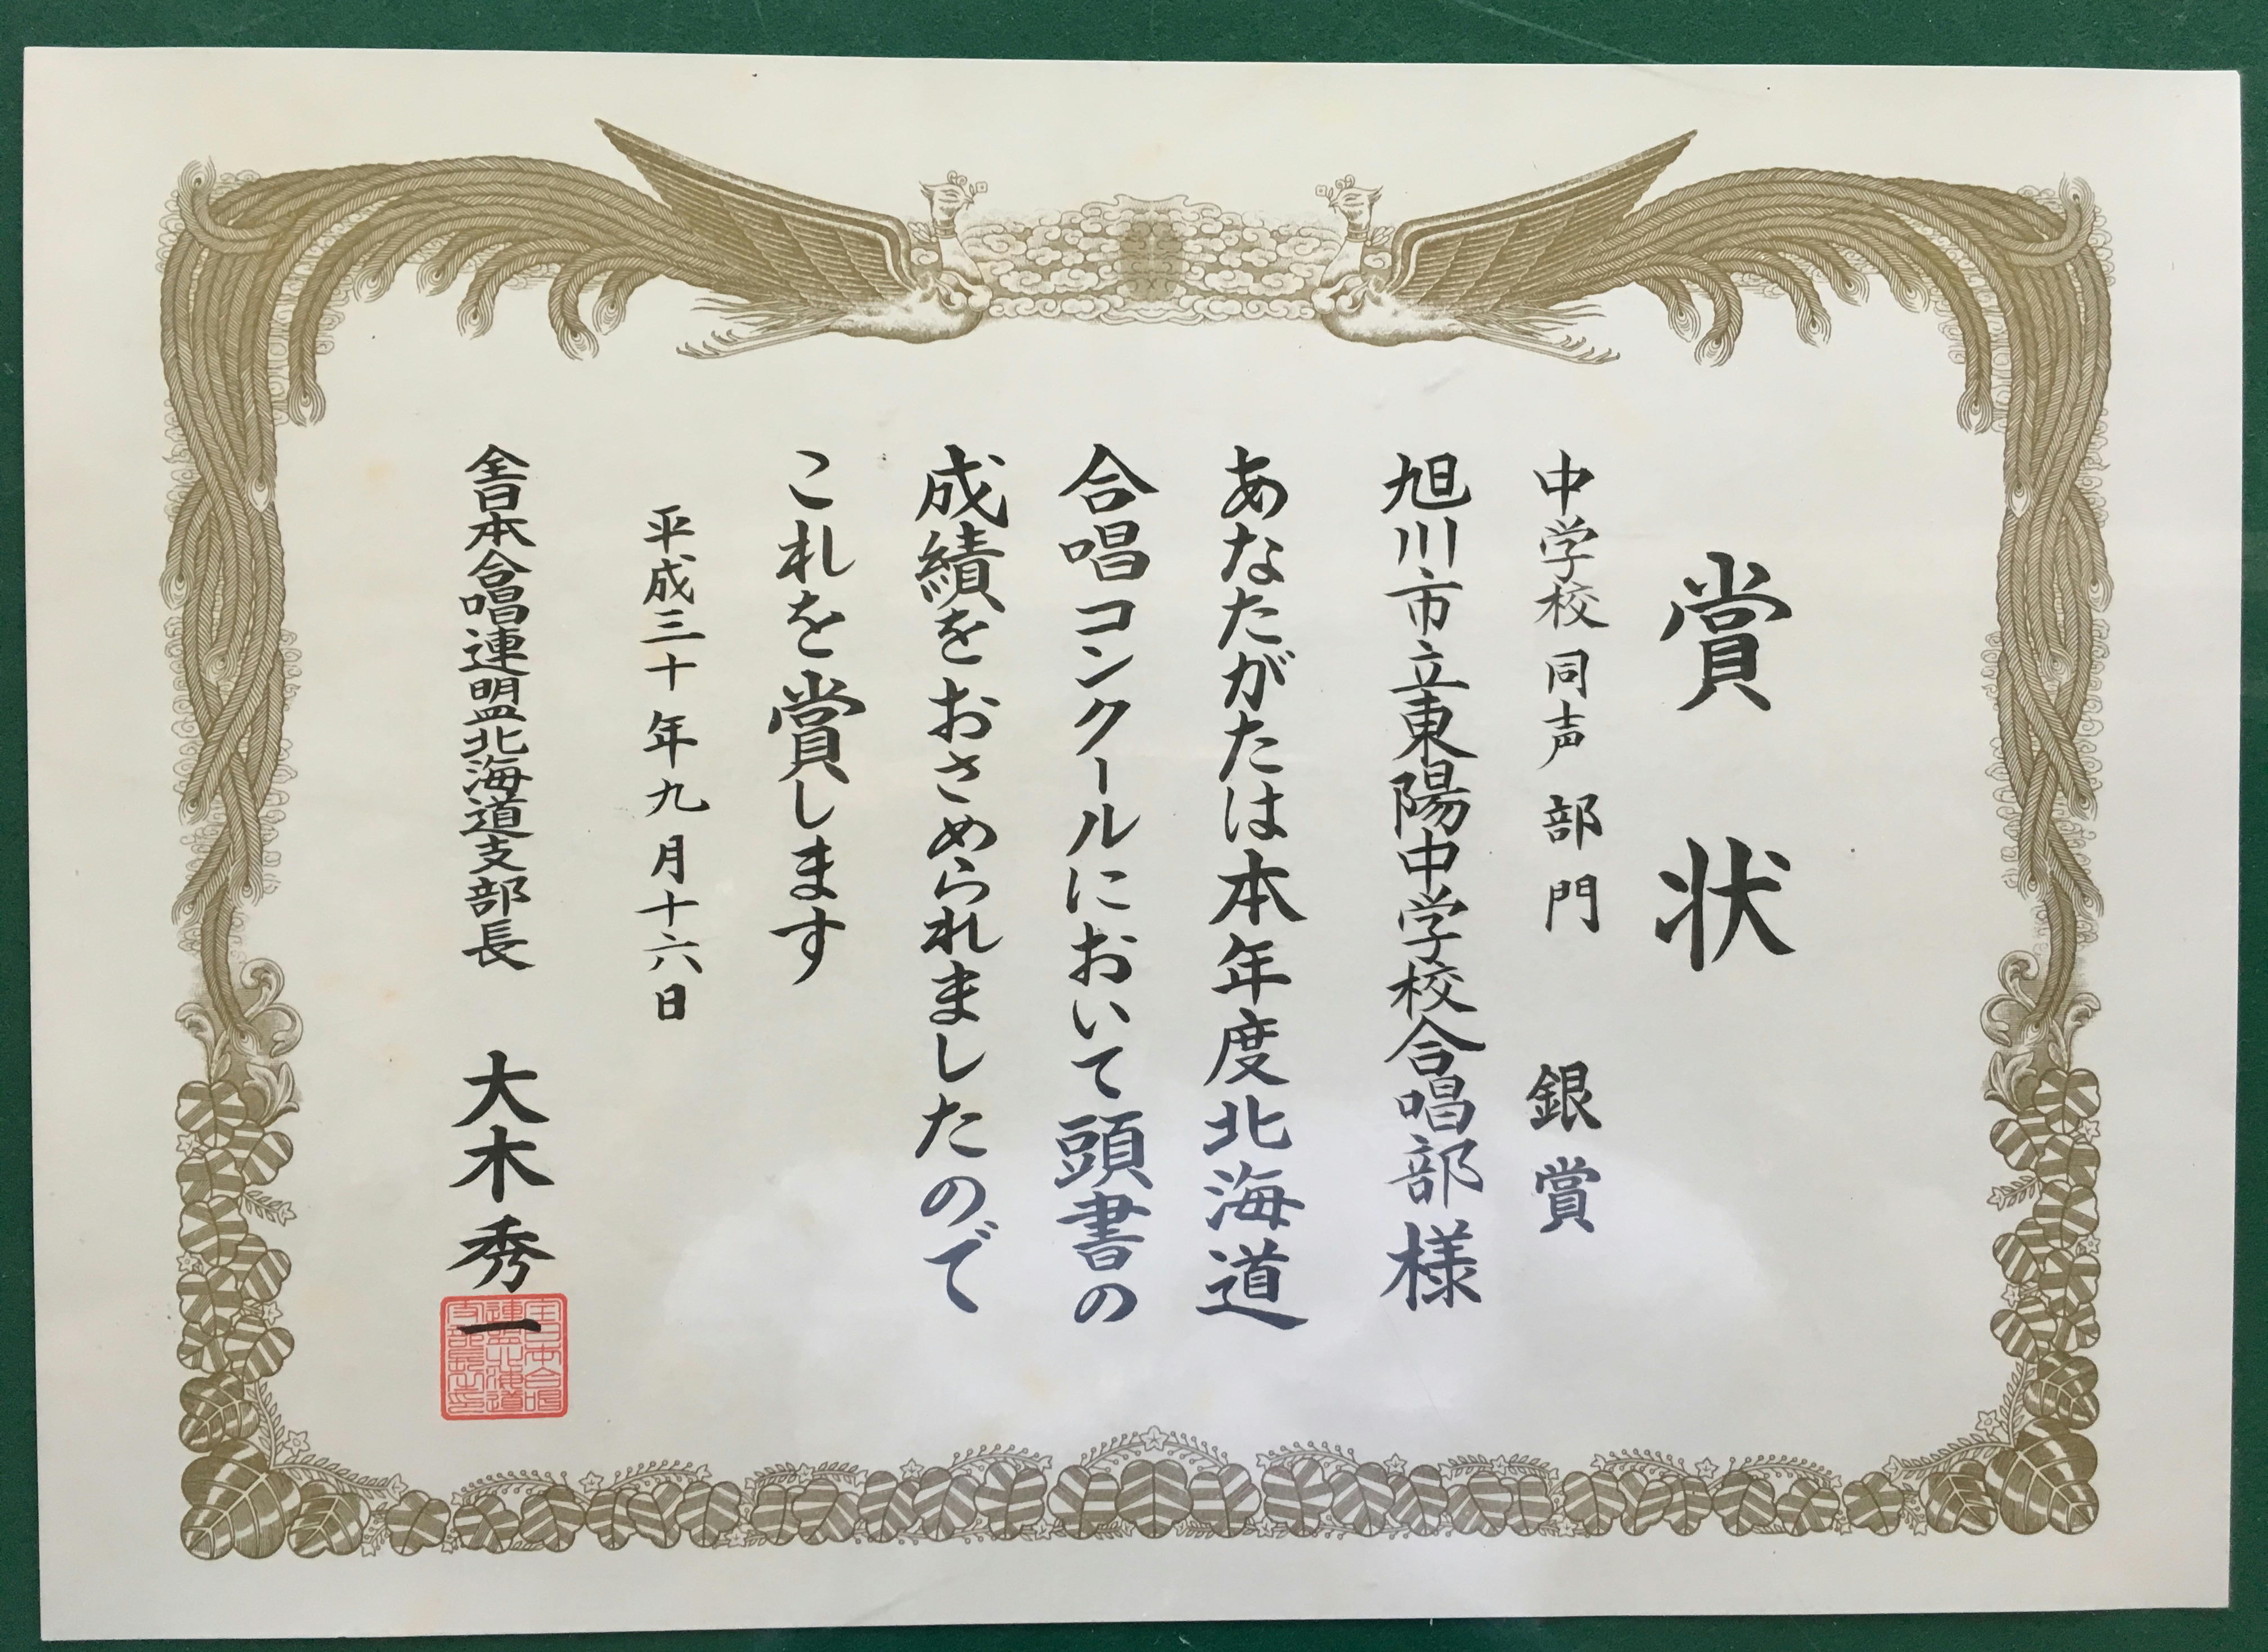 賞状
中学校同声部門 銀賞
旭川市立東陽中学校合唱部様
あなたがたは本年度北海道
合唱コンクールにおいて頭書の
成績をおさめられましたので
これを賞します
平成三十年九月十六日
全日本合唱連盟北海道支部長 大木秀一
全日本合唱
連盟北海道
支部長之印